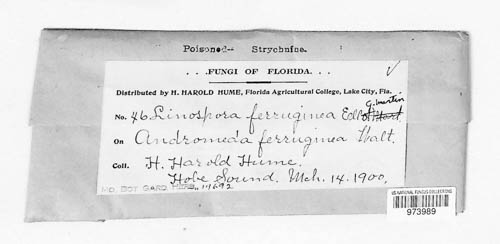 Poisoned-- Strychnine.
. . .FUNGI OF FLORIDA. . .
Distributed by H. HAROLD HUME, Florida Agricultural College, Lake City, Fla.
No. 46 Linospora ferruginea Ell & G. Martin
On Andromeda ferruginea Walt.
Coll. H. Harold Hume.
Hobe Sound. Mch. 14. 1900.
MO. BOT. GARD. HERB.
US NATIONAL FUNGUS COLLECTIONS
973989